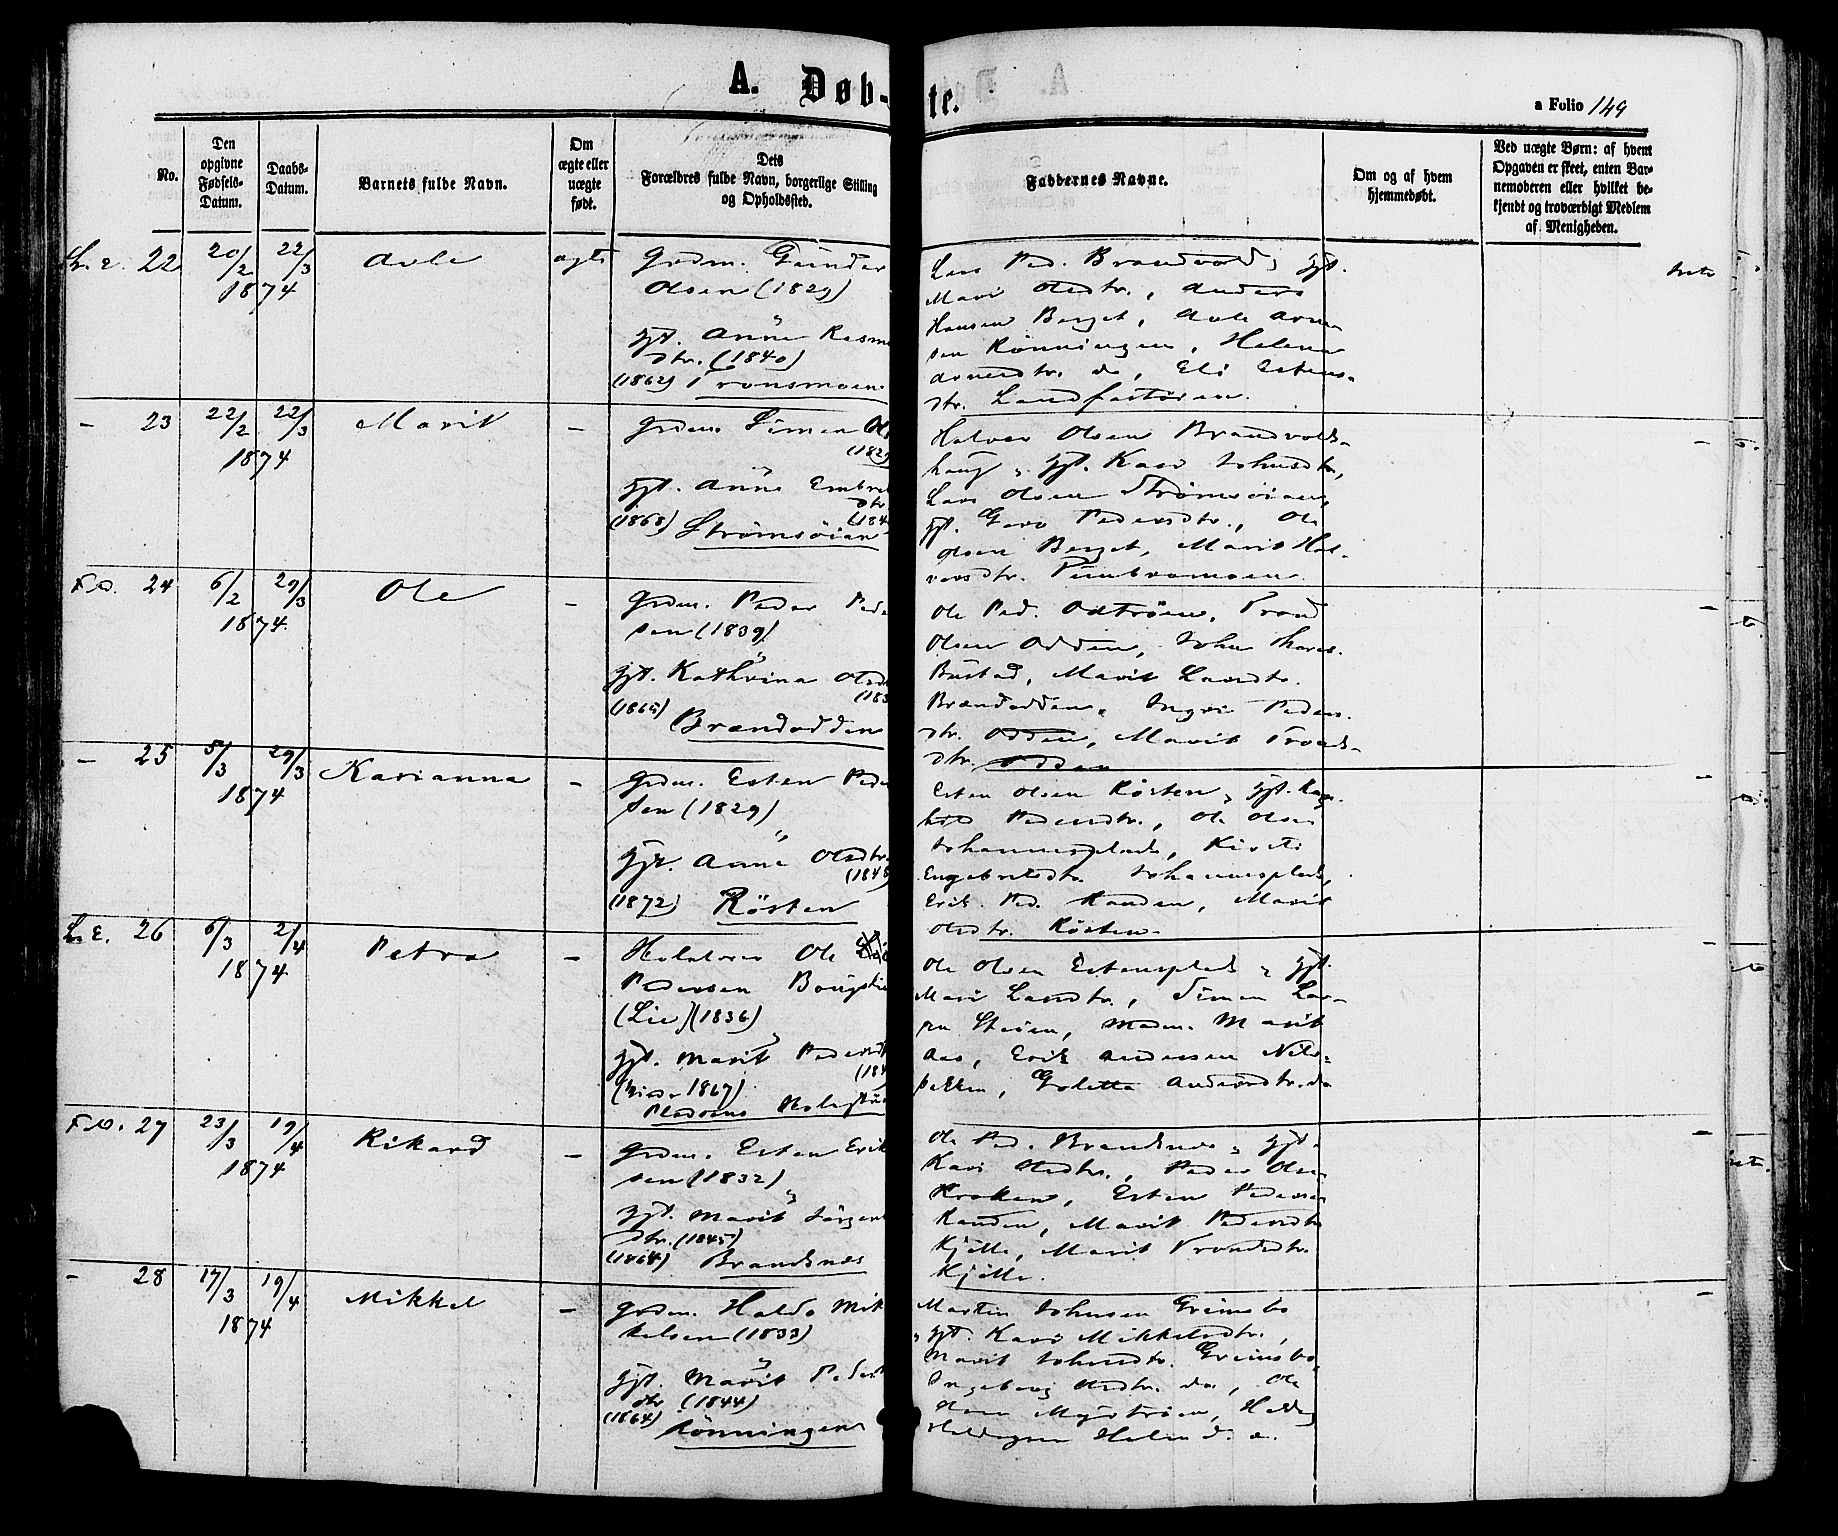 A. Døb-
te.
a Folio 149
No.
Den opgivne Fødsels-Datum.
Daabs-Datum.
Barnets fulde Navn.
Om ægte eller uægte født.
Dets Forældres fulde Navn, borgerlige Stilling og Opholdssted.
Faddernes Navne.
Om og af hvem hjemmedøbt.
Ved uægte Børn: af hvem Opgaven er skeet, enten Barnemoderen eller hvilket bekjendt og troværdigt Medlem af Menigheden.
22 20/2 22/3 Avle ægte Grdm. Gunder
1874 Olsen (1829)
gjt. Anne Rasm
dtr. (1840)
(1862) Tronsmoen
Lars Ped. Brandvold, gjt.
Mari Olsdtr., Anders
Hansen Berget, Avle Arne
sen Rønningen, Helena
Arnesdtr. do, Eli Estens-
dtr. Landfastøien.
- 23 22/2 22/3 Marit - Grdm. Simen Ols
1874 (1829
gjt. Anne Embret
dtr
(1868) (184
Strømsøien
Halvor Olsen Brandvolds-
haug, gjt. Kari Johnsdtr,
Lars Olsen Strømsøien,
gjt. Guro Pedersdtr., Ole
Olsen Berget, Marit Hal-
vorsdtr.
F.O. 24 6/2 29/3 Ole - Grdm. Peder Peder
1874 sen (1839)
gjt. Kathrina Olsd
(1865) (183
Brændodden
Ole Ped. Odtrøen, Trond
Olsen Odden, John
Bustad, Marit Larsdtr.
Brændodden, Ingri Peders-
dtr. Odden, Marit Tronds-
dtr. Odden
- 25 5/3 29/3 Karianna - Grdm. Esten Peder
1874 sen (1829)
gjt. Anne Olsdtr.
(1848)
(1872) Røsten
Esten Olsen Røsten, gjt. Ragn-
hild Pedersdtr., Ole Olsen
Johannesplads, Kirsti
Engebretsdtr. Johannesplads,
Erik Ped. Randen, Marit
Olsdtr. Røsten.
L.E. 26 6/3 2/4 Petra - Ole
1874 Pedersen
(Lie) (1836)
gjt. Marit Pedersdt
(184
1867)
Ole Olsen Estensplads, gjt.
Mari Larsdtr., Simen Lar-
sen Støen, Madm. Marit
Aas, Erik Andersen Nils-
bakken, Goletta Andersdtr. do
F.O. 27 23/3 19/4 Rikard - Grdm. Esten Erik
1874 sen (1832)
gjt. Marit Jørgens
dtr. (1845)
(1864) Brandsnes
Ole Ped. Brandsnes, gjt.
Kari Olsdtr., Peder Olsen
Kroken, Esten Pedersen
Randen, Marit Pedersdtr
Kjølle, Marit Trondsdtr.
Kjølle.
- 28 17/3 19/4 Mikkel - Grdm. Haldo Mik
1874 kelsen (1833)
gjt. Marit Peders
dtr (1844)
(1864) Rønningen
Martin Johnsen Grimsbo
gjt. Kari Mikkelsdtr.,
Marit Johnsdtr. Grimsbo,
Ingeborg Olsdtr. do, Ole
Olsen Myrtrøen,